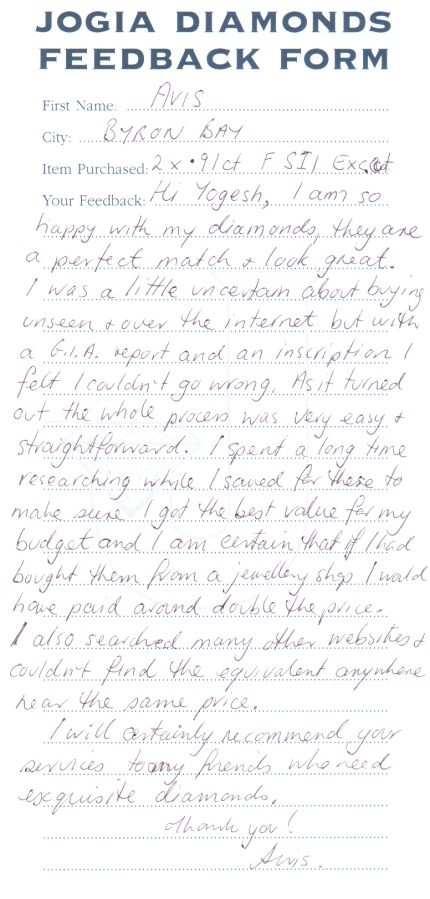 JOGIA DIAMONDS
FEEDBACK FORM
First Name: Avis
City: BYRON BAY
Item Purchased: 2 x .91ct F SI1 Ex cut
Your Feedback: Hi Yogesh, I am so
happy with my diamonds, they are
a perfect match & look great.
I was a little uncertain about buying
unseen & over the internet but with
a G.I.A. report and an inscription I
felt I couldn't go wrong. As it turned
out the whole process was very easy &
straightforward. I spent a long time
researching while I saved for these to
make sure I got the best value for my
budget and I am certain that if I had
bought them from a jewellery shop I would
have paid around double the price.
I also searched many other websites &
couldn't find the equivalent anywhere
near the same price.
I will certainly recommend your
services to any friends who need
exquisite diamonds.
Thank you!
Avis.